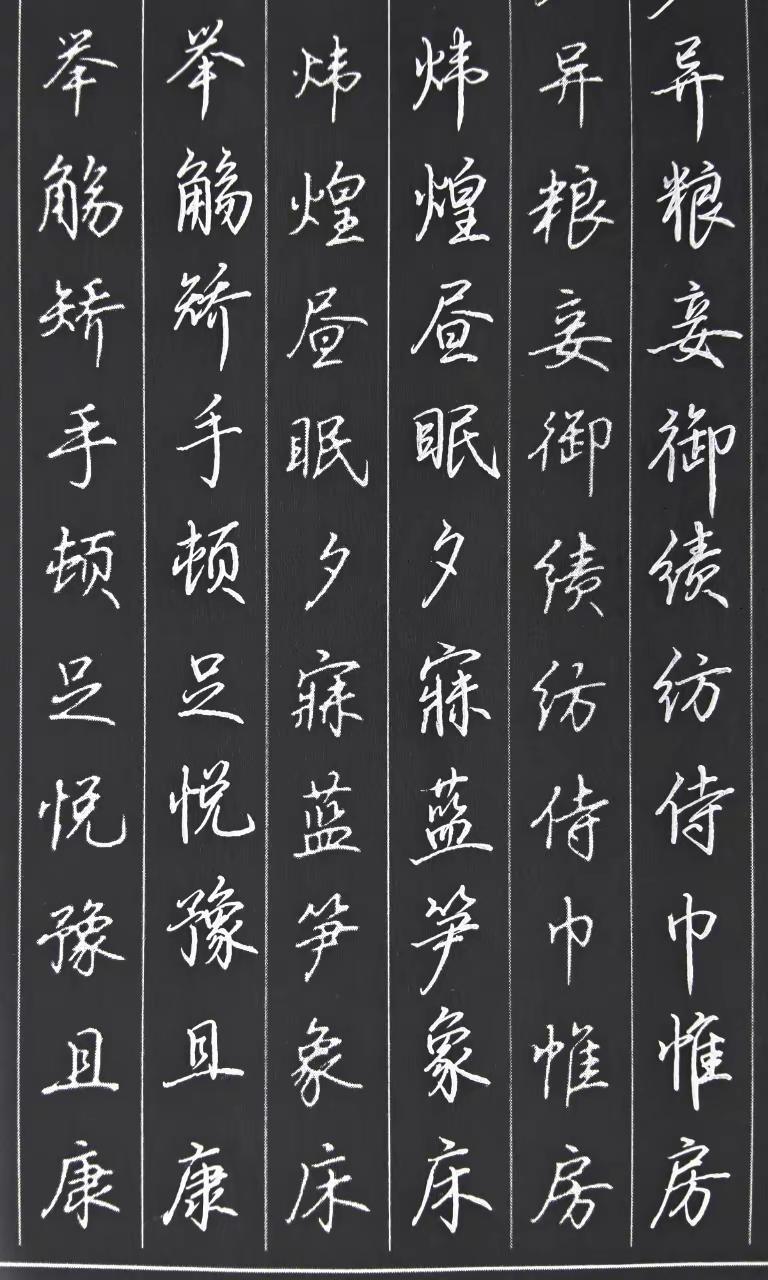 异粮妾御绩纺侍巾帷房
异粮妾御绩纺侍巾帷房
炜煌昼眠夕寐蓝笋象床
炜煌昼眠夕寐蓝笋象床
举觞矫手顿足悦豫且康
举觞矫手顿足悦豫且康